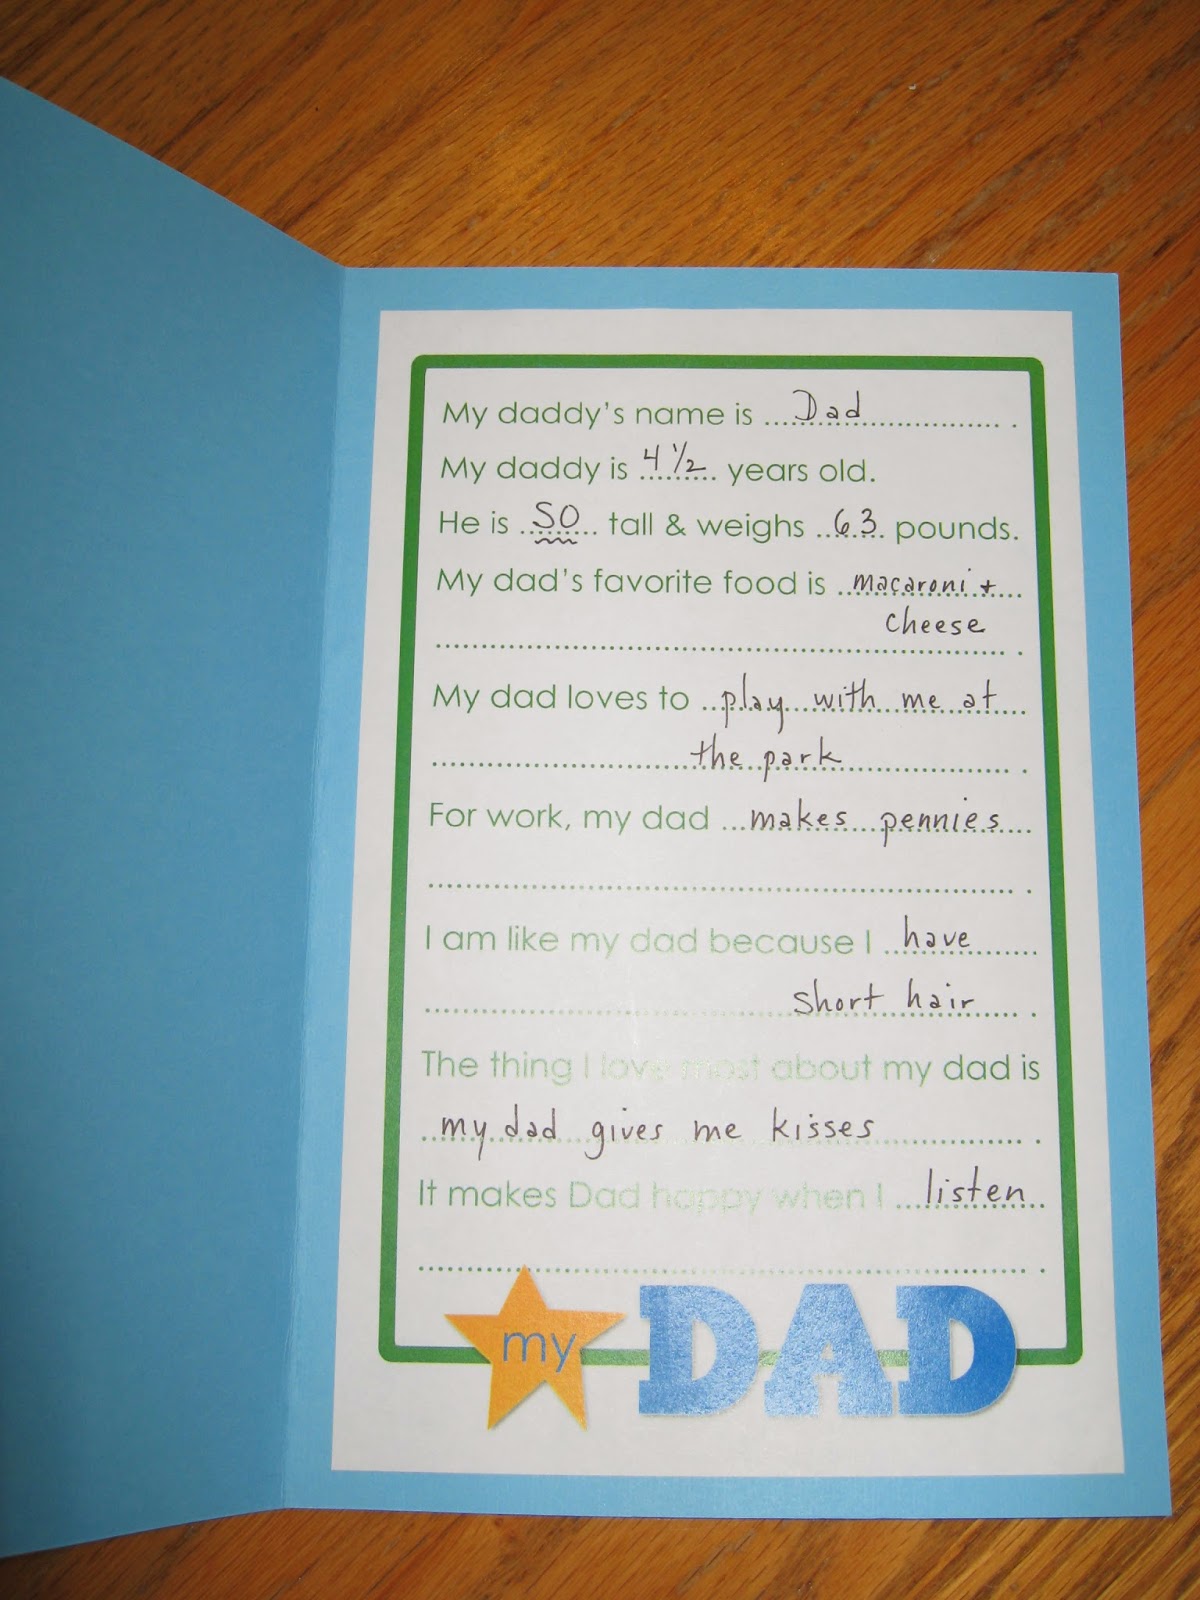 My daddy's name is Dad .
My daddy is 4 ½ years old.
He is SO tall & weighs 63 pounds.
My dad's favorite food is macaroni +
cheese .
My dad loves to play with me at
the park .
For work, my dad makes pennies
.
I am like my dad because I have
short hair .
The thing I love most about my dad is
my dad gives me kisses .
It makes Dad happy when I listen
.
my DAD